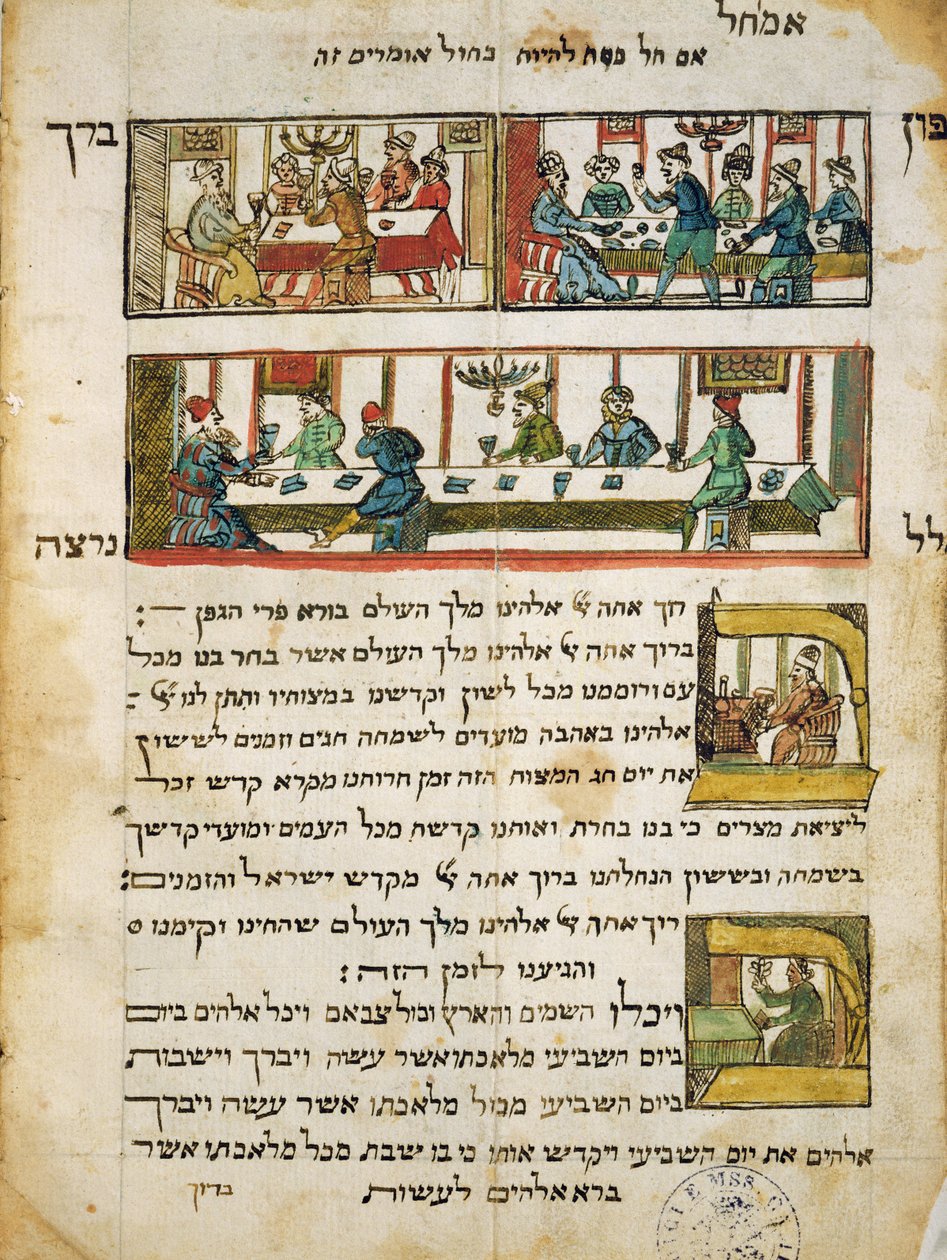 אמ׳חל
אם חל פסח להיות בחול אומרים זה
פון
ברך
לל
נרצה
רוך אתה אלהינו מלך העולם בורא פרי הגפן:
ברוך אתה אלהינו מלך העולם אשר בחר בנו מכל
עם ורוממנו מכל לשון וקדשנו במצותיו ותתן לנו
אלהינו באהבה מועדים לשמחה חגים וזמנים לששון
את יום חג המצות הזה זמן חרותנו מקרא קדש זכר
ליציאת מצרים כי בנו בחרת ואותנו קדשת מכל העמים ומועדי קדשך
בשמחה ובששון הנחלתנו ברוך אתה מקדש ישראל והזמנים:
רוך אתה אלהינו מלך העולם שהחינו וקימנו
והגיענו לזמן הזה:
ויכלו השמים והארץ וכול צבאם ויכל אלהים ביום
ביום השביעי מלאכתו אשר עשה ויברך וישבות
ביום השביעי מכול מלאכתו אשר עשה ויברך
אלהים את יום השביעי ויקדש אותו כי בו שבת מכל מלאכתו אשר
ברא אלהים לעשות
ברוך
MSS.